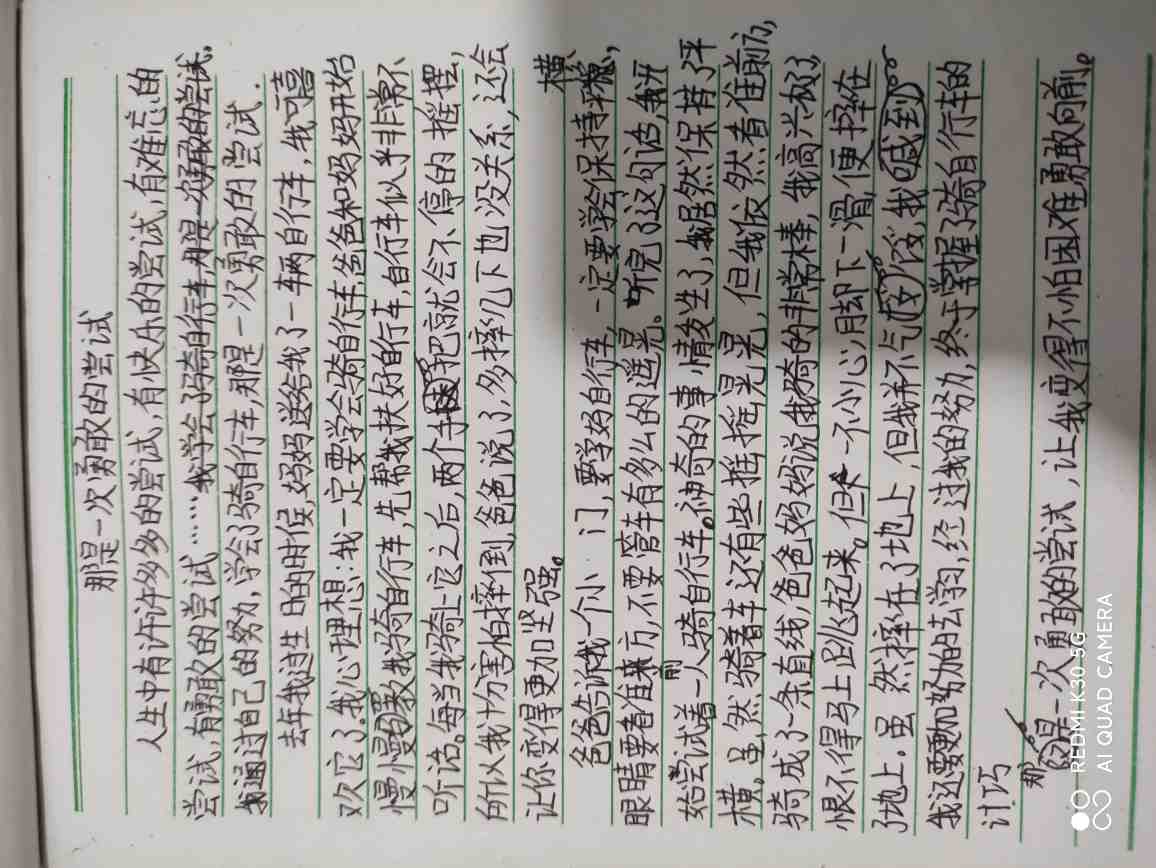 那是一次勇敢的尝试
人生中有许许多多的尝试,有快乐的尝试,有难忘的
尝试,有勇敢的尝试……我学会了骑自行车,那是一次勇敢的尝试。
我通过自己的努力,学会了骑自行车,那是一次勇敢的尝试.
去年我过生日的时候,妈妈送给我了一车两自行车,我可喜
欢它了。我心理想:我一定要学会骑自行车,爸爸和妈妈开始
慢慢教我骑自行车,先帮我扶好自行车自行车似乎非常不
听话。每当我骑上它之后,两个手把就会不停的摇摆,
所以我十分害怕摔到,爸爸说了,多摔几下也没关系,还会
让你变得更加坚强。
爸爸告诉我一个小门,要学好自行车,一定要学会保持平横,
眼睛要看准前方,不要管车有多么的遥晃。听完了这句话,我开
始尝试着一人骑自行车。神奇的事情发生了,我居然保持了平
横,虽然骑着车还有些摇摇晃晃,但我依然看准前方,
骑成了一条直线,爸爸妈妈说我骑的非常棒,我高兴极了,
恨不得马上跳起来。但一不小心,脚却下一滑,便摔在
了地上.虽然摔在了地上,但我并不气没馁,我感到
我还要加努加的去学习,经过我的努力,终于掌握了骑自行车的
计巧
那是一次勇敢的尝试,让我变得不怕困难勇敢向前。
REDMI K30 5G
AI QUAD CAMERA